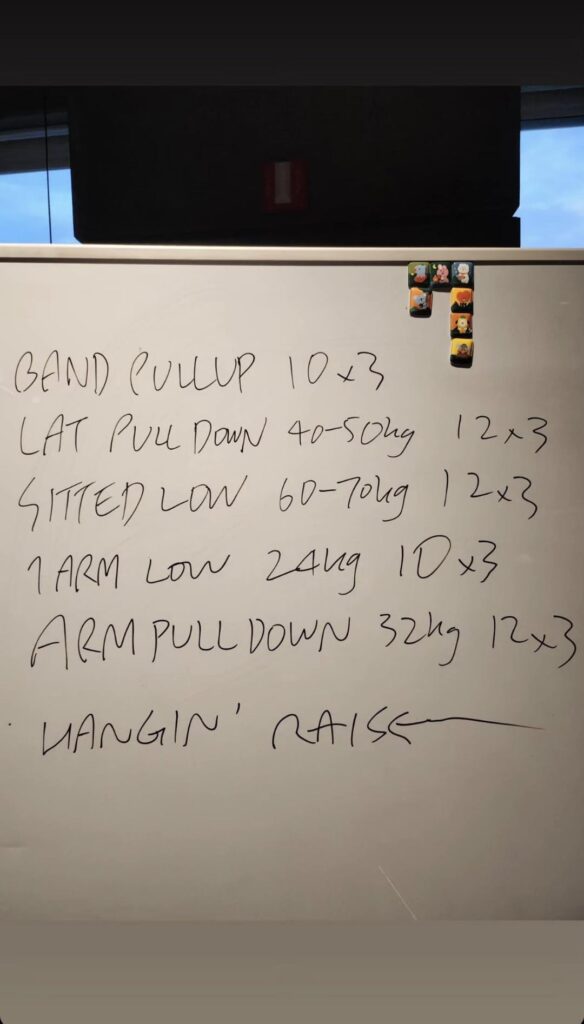 BAND PULLUP 10x3
LAT PULL DOWN 40-50kg 12x3
SITTED LOW 60-70kg 12x3
1 ARM LOW 24kg 10x3
ARM PULL DOWN 32kg 12x3
HANGIN' RAISE